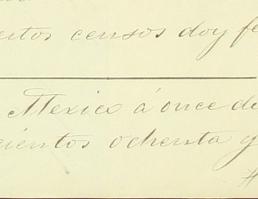 estos censos doy fe
Mexico á once de
cientos ochenta y